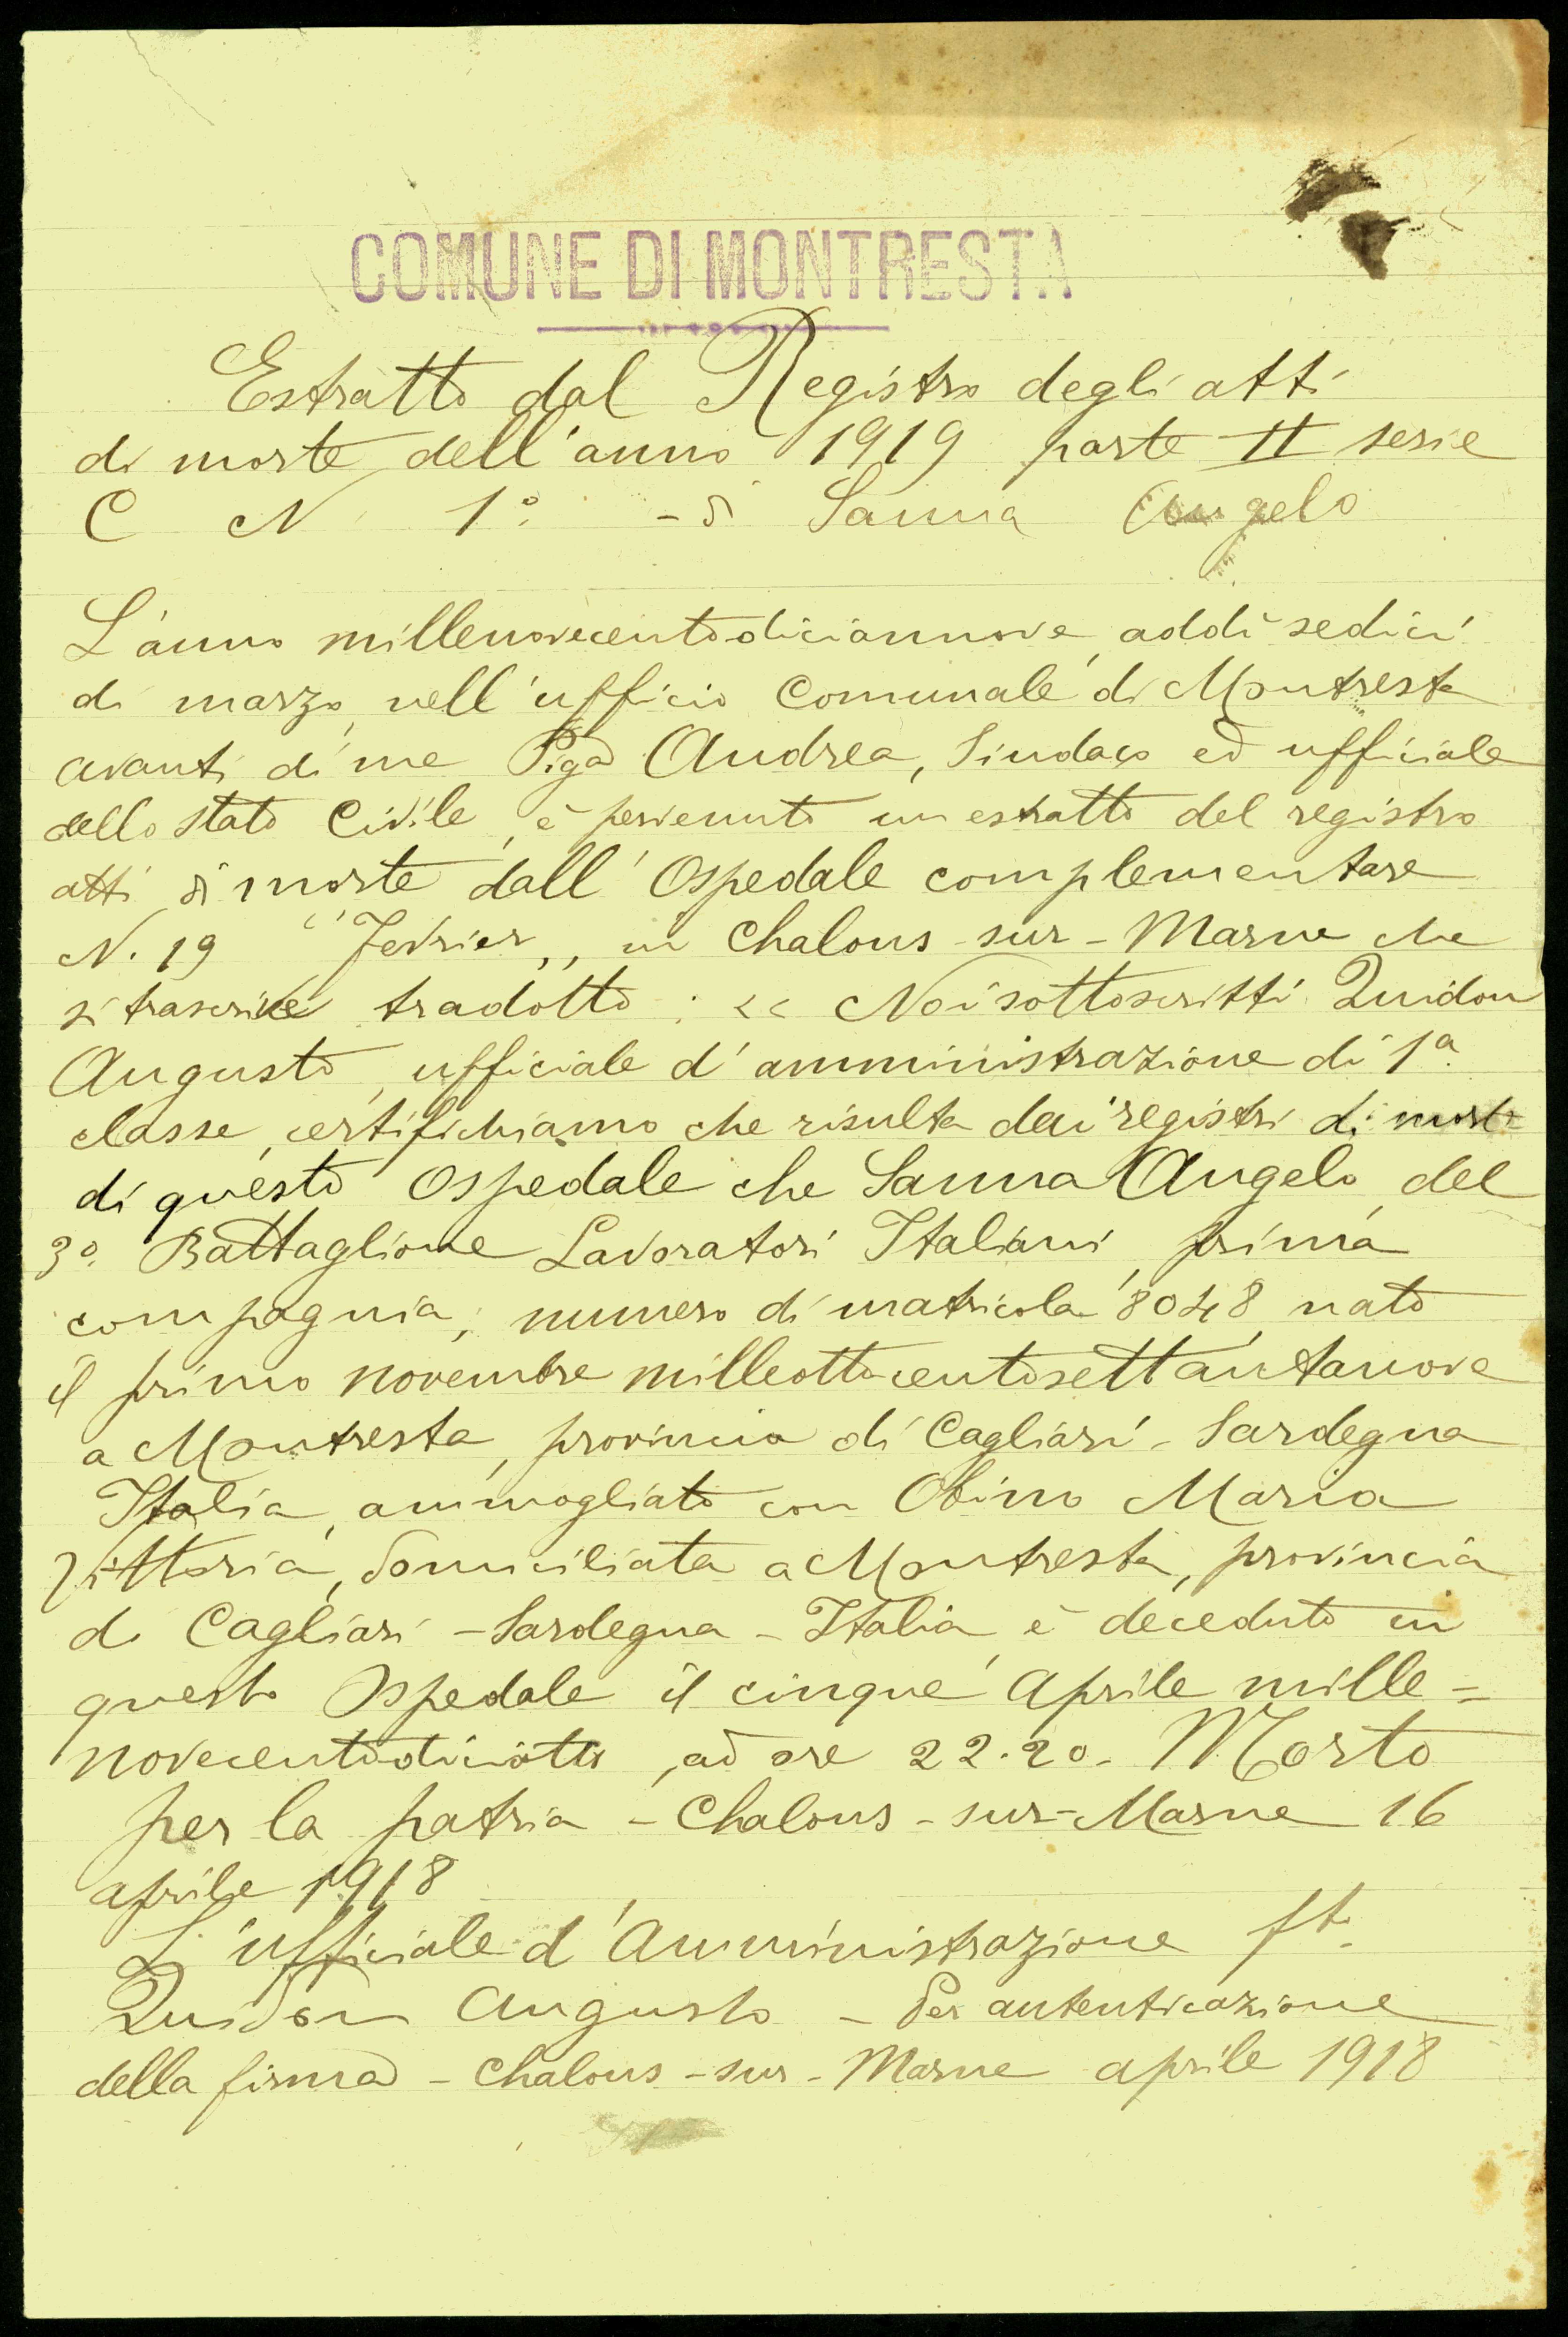 COMUNE DI MONTRESTA
Estratto dal Registro degli atti
di morte dell'anno 1919 parte II serie
C N 1º. - di Sanna Angelo
L'anno millenovecentodiciannove, addì sedici
di marzo, nell'ufficio Comunale di Montresta
avanti di me Piga Andrea, Sindaco ed ufficiale
dello stato Civile, è pervenuto un estratto del registro
atti di morte dall'Ospedale complementare
N. 19 "Fevrier,, in Chalons-sur-Marne che
si trascrive tradotto: << Noi sottoscritti Quidon
Augusto, ufficiale d'amministrazione di 1ª.
classe, certifichiamo che risulta dai registri di morte
di questo Ospedale che Sanna Angelo, del
3º. Battaglione Lavoratori Italiani, prima
compagnia, numero di matricola 8048, nato
il primo novembre milleottocentosettantanove
a Montresta, provincia di Cagliari - Sardegna
Italia, ammogliato con Obino Maria
Vittoria, domiciliata a Montresta, provincia
di Cagliari - Sardegna - Italia, è deceduto in
questo Ospedale il cinque Aprile mille=
novecentodiciotto, ad ore 22.20. Morto
per la patria - Chalons-sur-Marne 16
aprile 1918
L'ufficiale d'Amministrazione ft.
Quidon Augusto - Per autenticazione
della firma - Chalons-sur-Marne aprile 1918